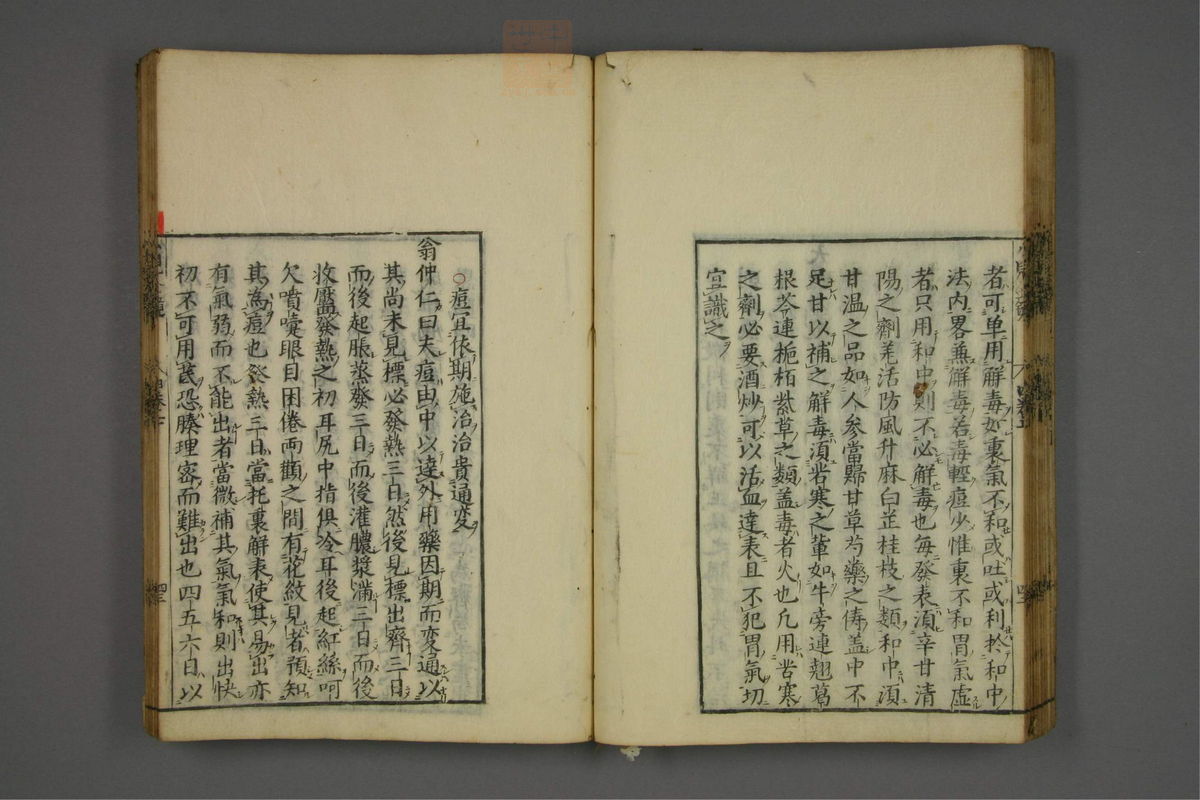 者可单用解毒如裏氣不和或吐或利於和中
法内畧無解毒若毒輕痘少惟裏不和胃氣虛
者只用和中則不必解毒也每發表須辛甘清
陽之劑羌活防風升麻白芷桂枝之類和中須
甘温之品如人參當歸甘草芍藥之儔盖中不
足甘以補之解毒須苦寒之輩如牛旁連翹葛
根芩連梔栢紫草之類盖毒者火也凢用苦寒
之劑必要酒炒可以活血達表且不犯胃氣切
宜識之
○痘宜依期施治治貴通変
翁仲仁曰夫痘由中以達外用藥因期而変通以
其尚未見標必發熱三日然後見標出齊三日
而後起脹蒸發三日而後灌膿漿滿三日而後
收靨發熱之初耳尻中指俱冷耳後起紅絲呵
欠噴嚏眼目困倦両顴之間有花紋見者預知
其為痘也發熱三日當托裏解表使其易出亦
有氣弱而不能出者當微補其氣氣和則出快
初不可用芪恐腠理密而難出也四五六日以